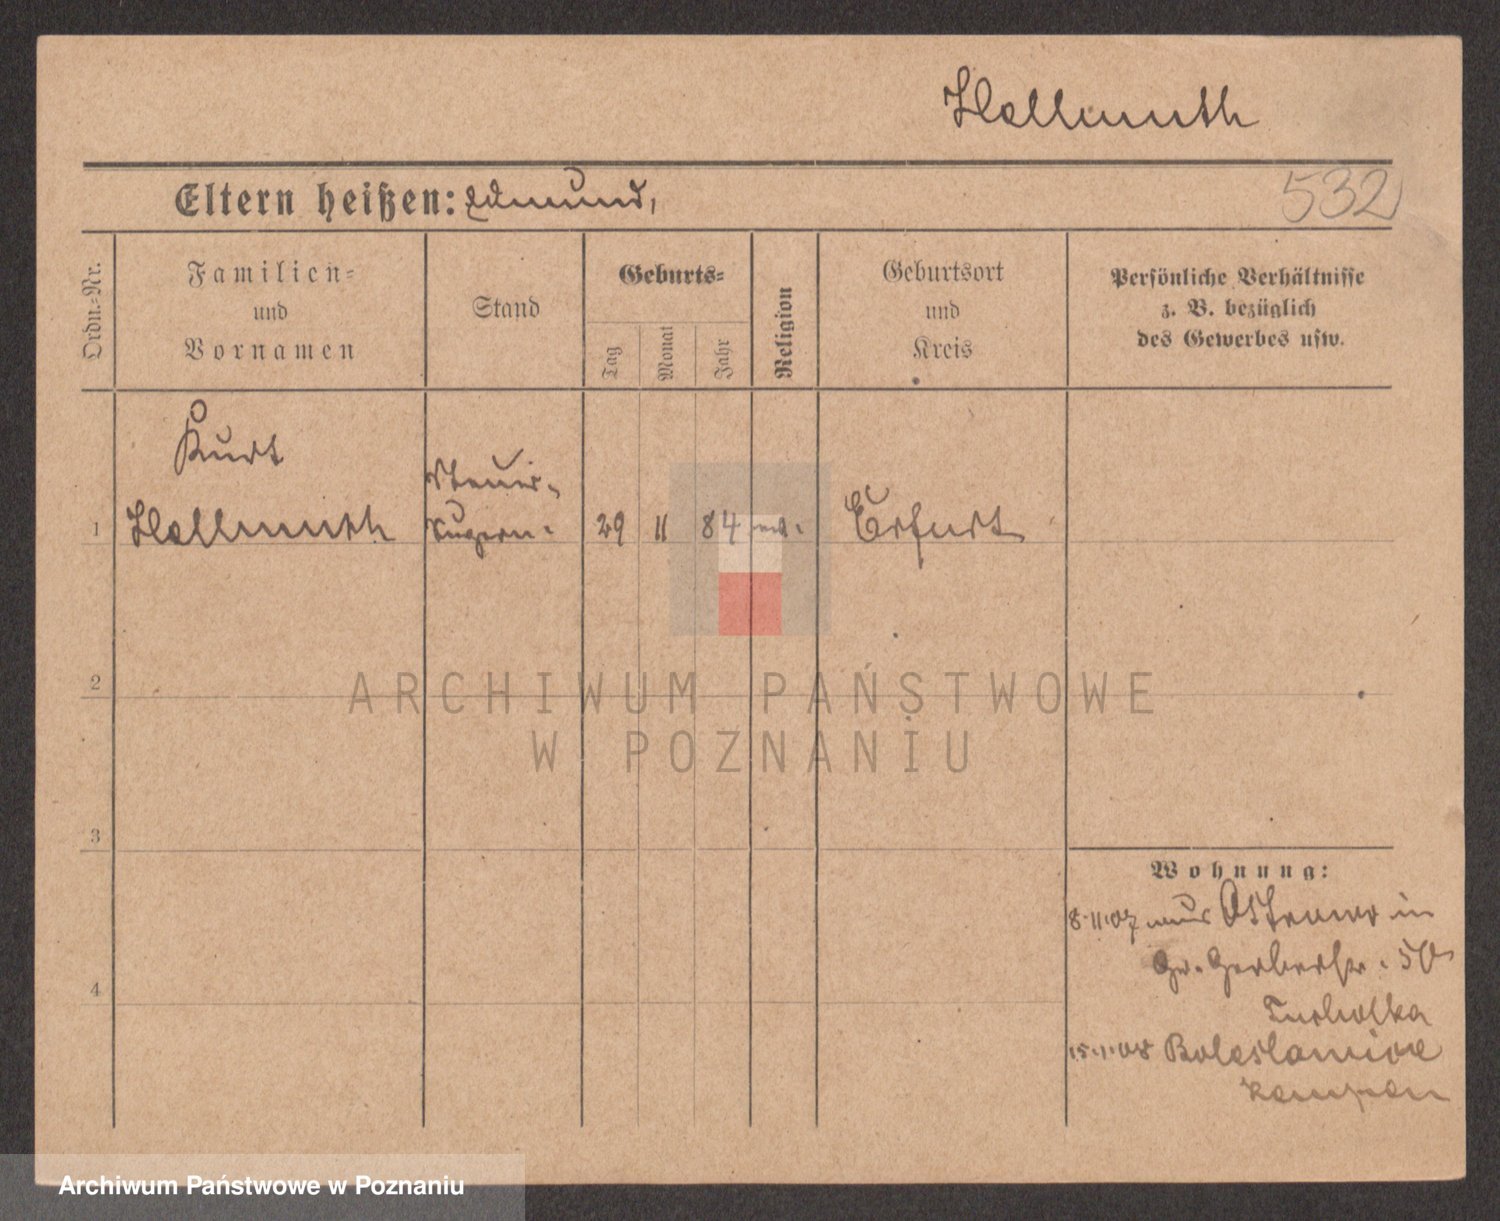 Hellmuth
Eltern heißen: Edmund,
532
Ordn.=Nr.
Familien=
und
Vornamen
Stand
Geburts=
Tag
Monat
Jahr
Religion
Geburtsort
und
Kreis
Persönliche Verhältnisse
z. B. bezüglich
des Gewerbes usw.
Kurt
1 Hellmuth
29 11 84
Erfurt
2
3
4
Wohnung:
8.11.07 aus Ostrowo in
Gr. Gerberstr. 50
Tucholka
15.1.08 Boleslawice
Kempen
ARCHIWUM PAŃSTWOWE
W POZNANIU
Archiwum Państwowe w Poznaniu